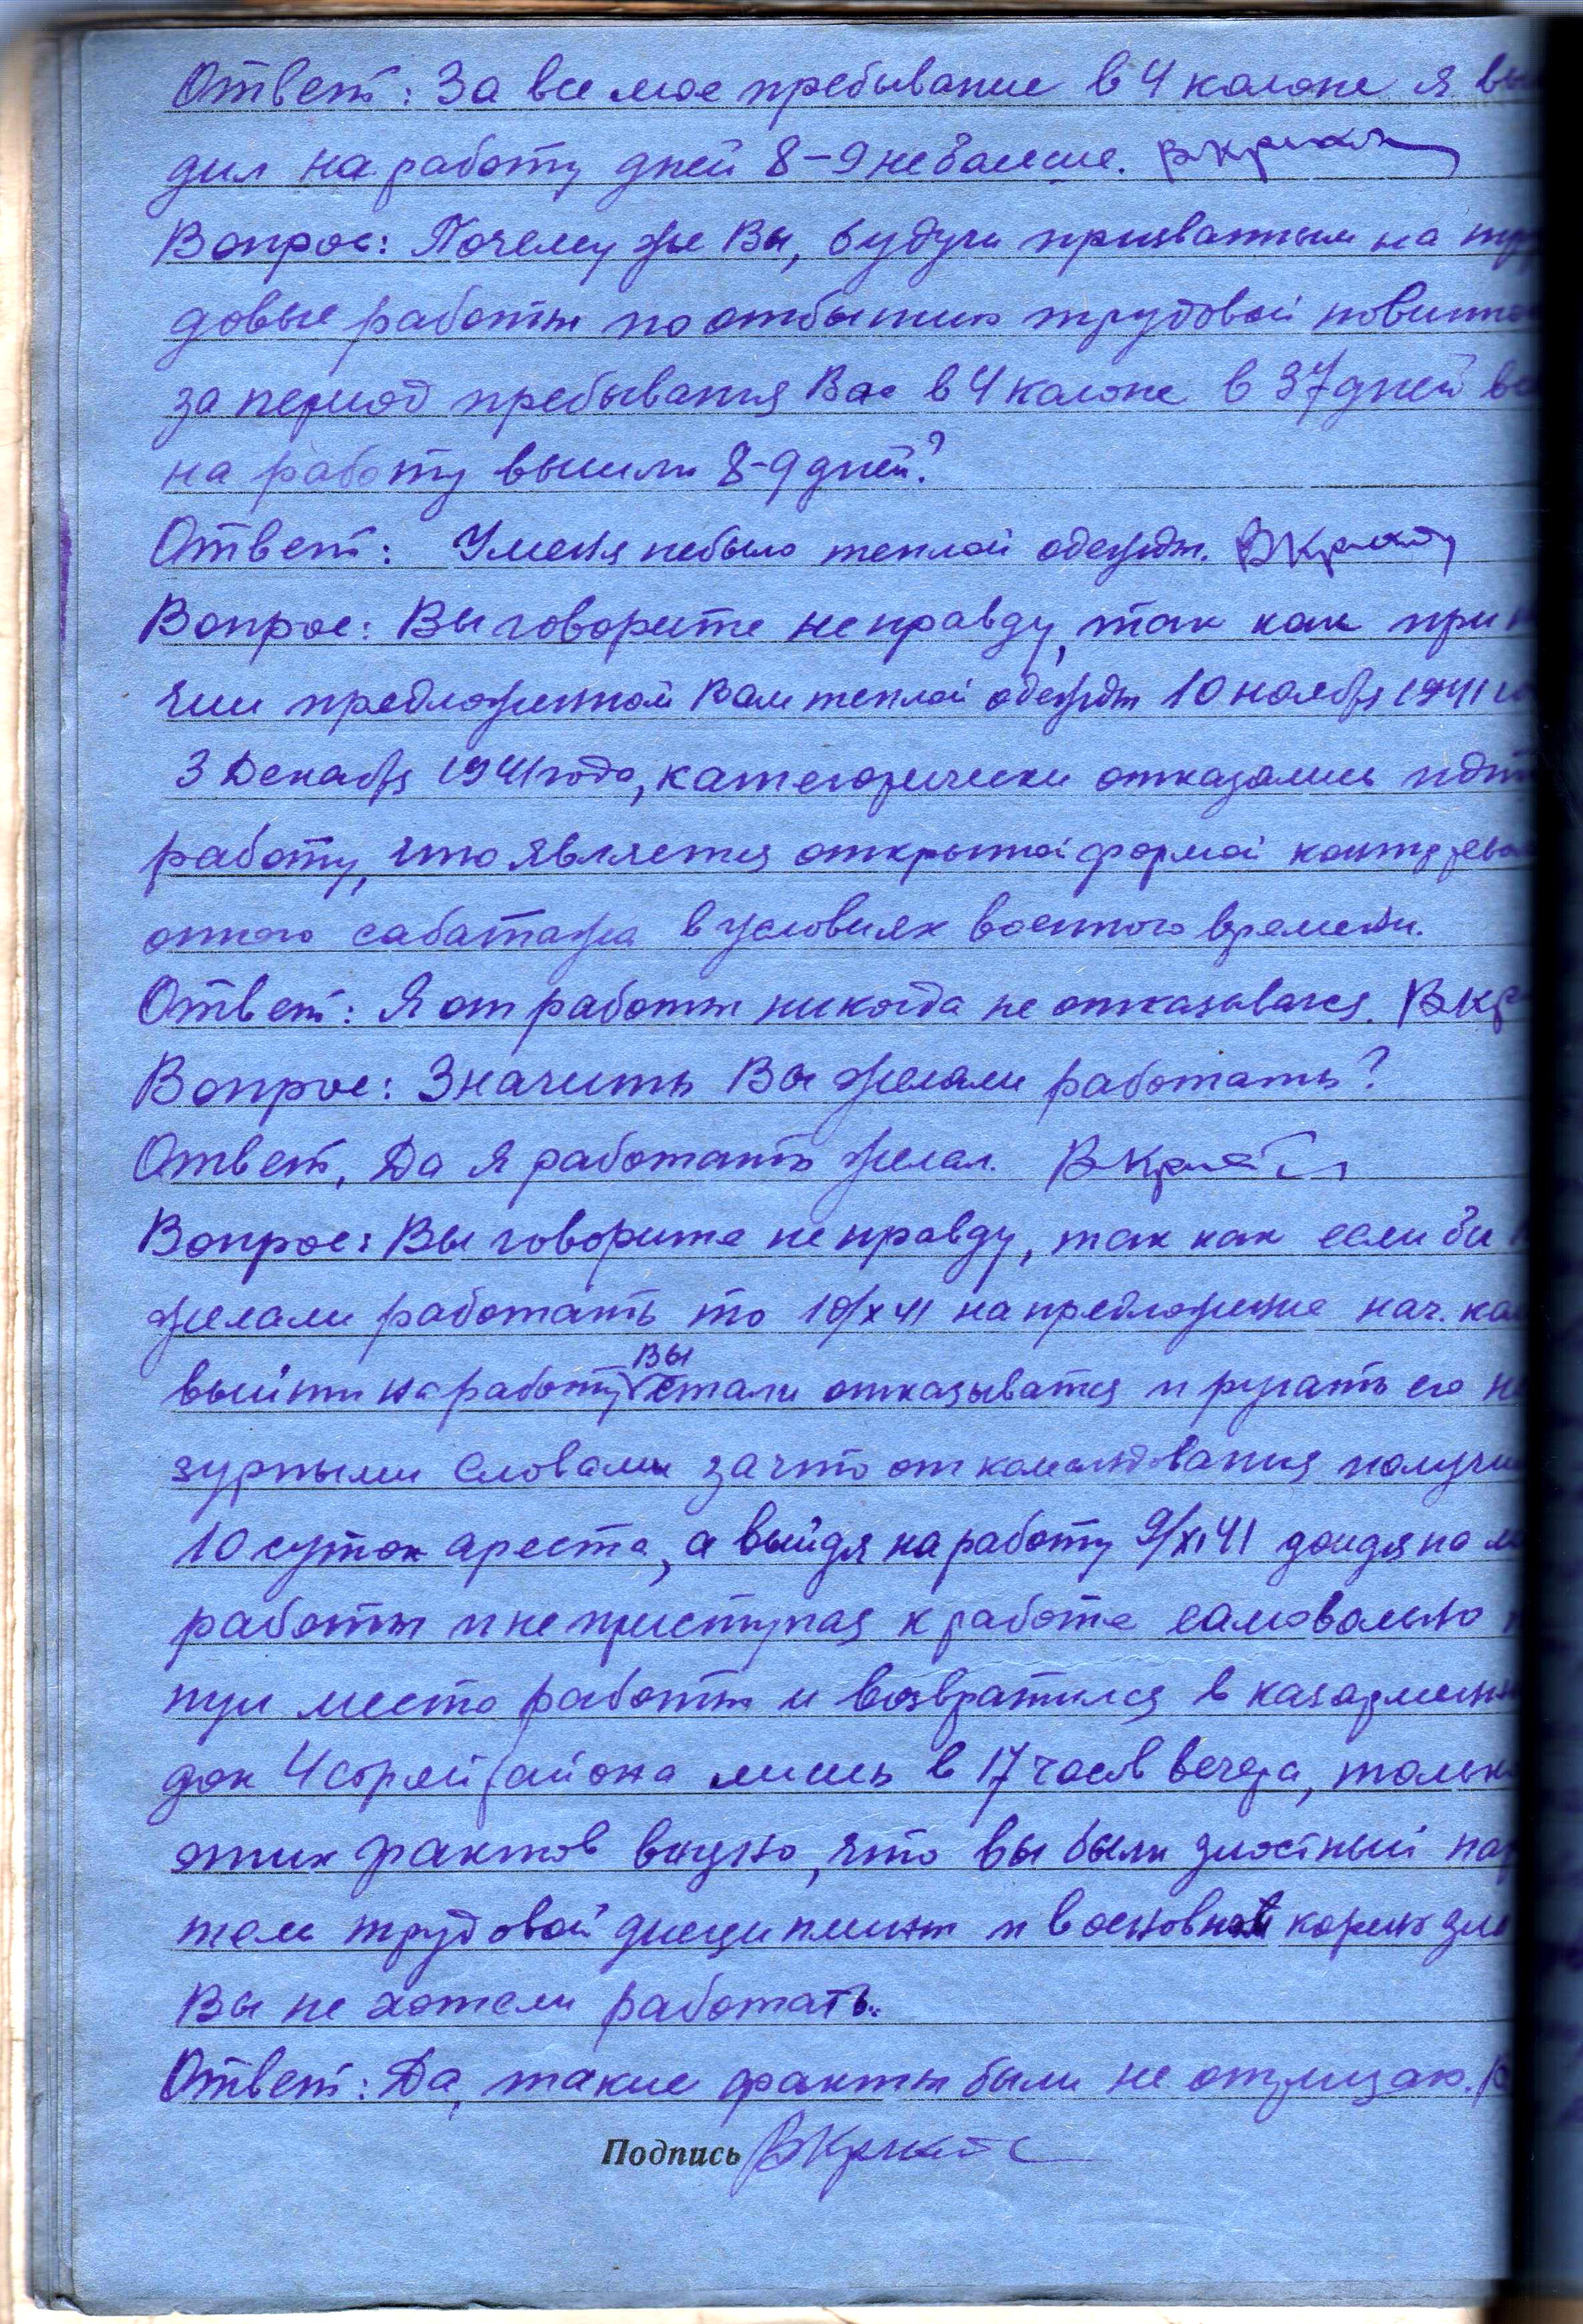 Ответ: За все мое пребывание в 4 калоне я вы
дил на работу дней 8-9 не больше.
Вопрос: Почему же Вы, будучи призванным на тру
довые работы по отбытию трудовой повинно
за период пребывания Вас в 4 калоне в 37 дней вс
на работу вышли 8-9 дней?
Ответ: У меня небыло теплой одежды.
Вопрос: Вы говорите не правду, так как при н
чии предложенной Вам теплой одежды 10 ноября 1941 го
3 Декабря 1941 года, категорически отказались идти
работу, что является открытой формой контррево
онного сабатажа в условиях военного времени.
Ответ: Я от работы никогда не отказывался. ВКр
Вопрос: Значить Вы желали работать?
Ответ, Да я работать желал.
Вопрос: Вы говорите не правду, так как если бы
желали работать то 10/X 41 на предложение нач. кол
выйти на работу Вы стали отказыватся и ругать его не
зурными словами за что от командования получи
10 суток ареста, а выйдя на работу 9/XI 41 дойдя по м
работы и не приступая к работе самовольно
нул место работы и возвратился в казармен
док 4 стройрайона лишь в 17 часов вечера, только
этих фактов видно, что вы были злостный нар
тель трудовой дисциплины и в основном корень зло
Вы не хотели работать.
Ответ: Да, такие факты были не отрицаю.
Подпись